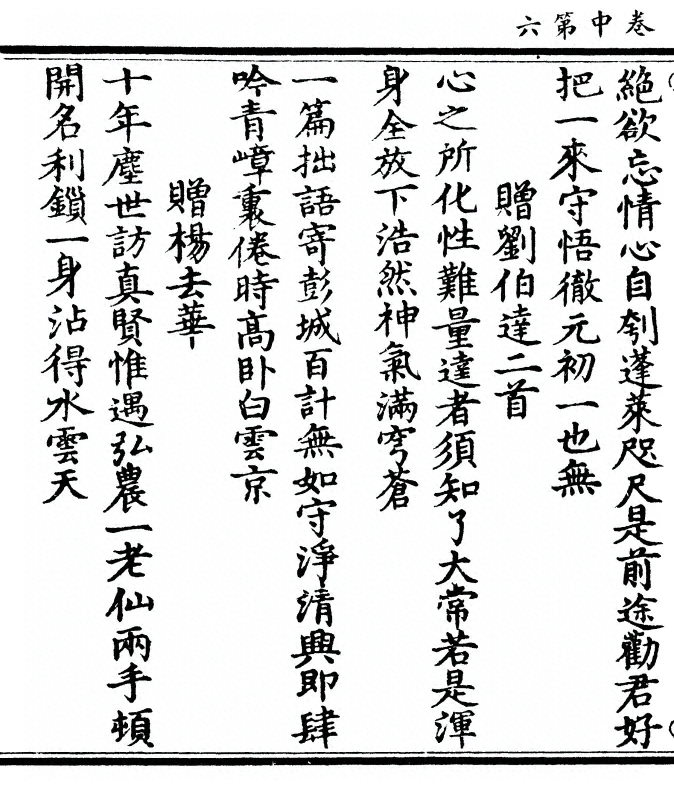 卷中第六
絕欲忘情心自刳蓬萊咫尺是前途勸君好
把一來守悟徹元初一也無
贈劉伯達二首
心之所化性難量達者須知了大常若是渾
身全放下浩然神氣滿穹蒼
一篇拙語寄彭城百計無如守淨清興即肆
吟青嶂裏倦時高臥白雲京
贈楊去華
十年塵世訪真賢惟遇弘農一老仙兩手頓
開名利鎖一身沾得水雲天